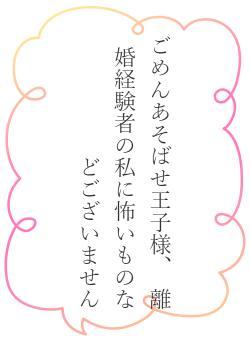 ごめんあそばせ王子様、離
婚経験者の私に怖いものな
どございません